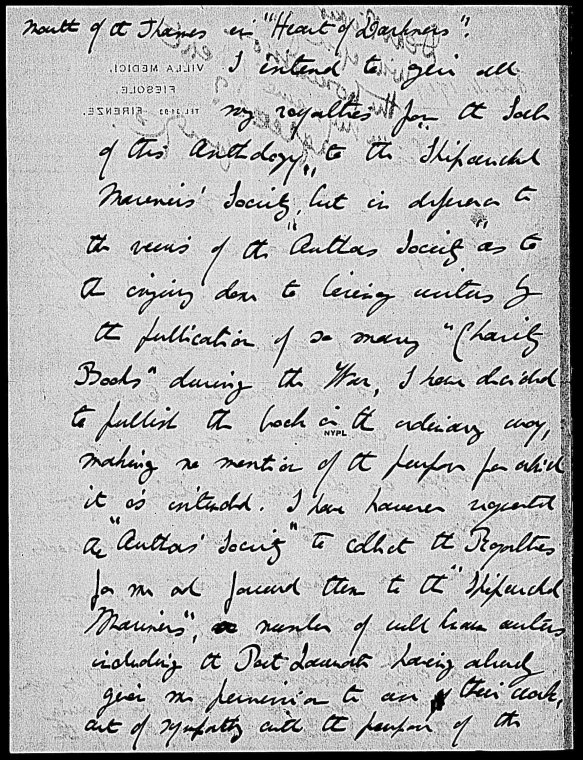 mouth of the Thames in "Heart of Darkness".
I intend to give all
my royalties for the sale
of this Anthology, to the Shipwrecked
Mariners' Society, but in deference to
the views of the "Authors Society" as to
the injury done to living writers by
the publication of so many "Charity
Books" during the War, I have decided
to publish the book in the ordinary way,
NYPL
making no mention of the purpose for which
it is intended. I have however requested
the "Authors' Society" to collect the Royalties
for me and forward them to the "Shipwrecked
Mariners", a number of well known authors
including the Poet Laureate having already
given me permission to use their work,
out of sympathy with the purpose of the
VILLA MEDICI,
FIESOLE.
FIRENZE.